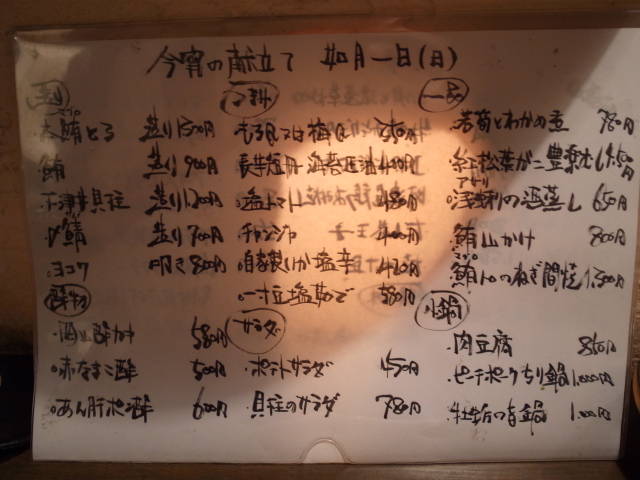 今宵の献立て 如月一日(日)
造り
マグロ
本鮪とろ 造り1,500円
鮪 造り900円
貝柱 造り1,200円
〆鯖 造り700円
ヨコワ 叩き800円
酢物
酢 580円
赤なまこ酢 500円
あん肝ポン酢 600円
もろ味 梅 350円
長芋短冊 400円
塩トマト 480円
チャンジャ 400円
自家製いか塩辛 420円
一寸豆塩茹で 580円
サラダ
ポテトサラダ 450円
貝柱のサラダ 780円
一品
若筍とわかめ煮 780円
紅松葉がに
アサリ
浅利の酒蒸し 650円
鮪山かけ 800円
マグロ
鮪トロねぎ間焼 1,300円
小鍋
肉豆腐 850円
ピーチポークちり鍋 1,000円
牡蛎の 鍋 1,000円